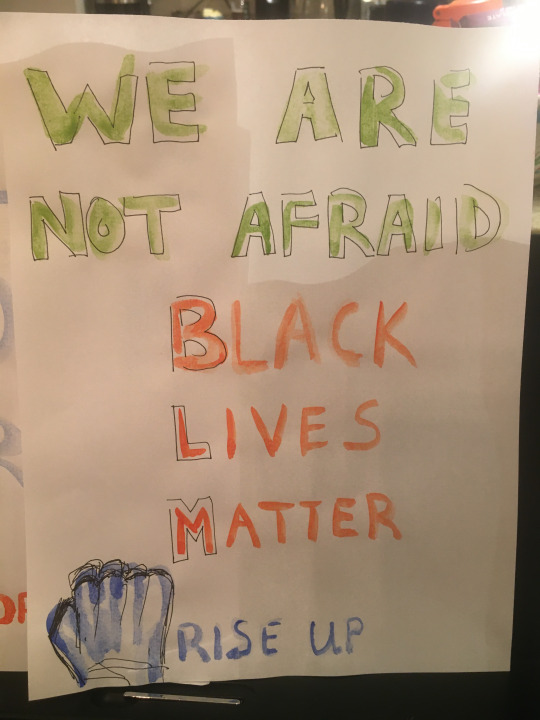 WE ARE
NOT AFRAID
BLACK
LIVES
MATTER
RISE UP